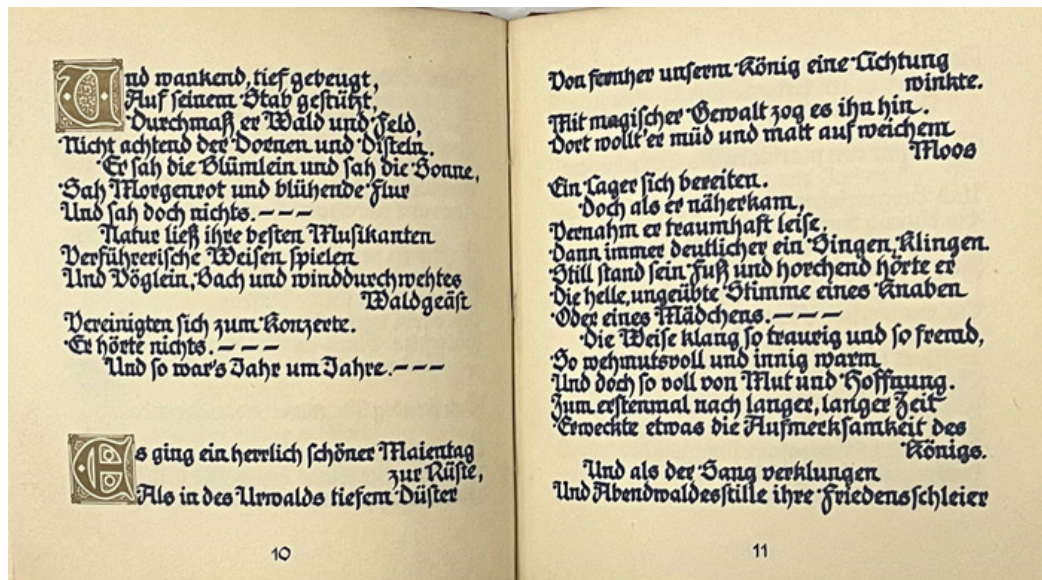 Und wankend, tief gebeugt,
Auf seinem Stab gestützt,
Durchmaß er Wald und Feld,
Nicht achtend der Dornen und Disteln.
Er sah die Blümlein und sah die Sonne,
Sah Morgenrot und blühende Flur
Und sah doch nichts. – – –
Natur ließ ihre besten Musikanten
Verführerische Weisen spielen
Und Vöglein, Bach und winddurchwehtes
Waldgeäst
Vereinigten sich zum Konzerte.
Er hörte nichts. – – –
Und so war's Jahr um Jahre. – – –
Es ging ein herrlich schöner Maientag
zur Rüste,
Als in des Urwalds tiefem Düster
10
Von fernher unserm König eine Lichtung
winkte.
Mit magischer Gewalt zog es ihn hin.
Dort wollt er müd und matt auf weichem
Moos
Ein Lager sich bereiten.
Doch als er näherkam,
Vernahm er traumhaft leise,
Dann immer deutlicher ein Singen, Klingen.
Still stand sein Fuß und horchend hörte er
Die helle, ungeübte Stimme eines Knaben
Oder eines Mädchens. – – –
Die Weise klang so traurig und so fremd,
So wehmutsvoll und innig warm
Und doch so voll von Mut und Hoffnung.
Zum erstenmal nach langer, langer Zeit
Erweckte etwas die Aufmerksamkeit des
Königs.
Und als der Sang verklungen
Und Abendwaldesstille ihre Friedensschleier
11